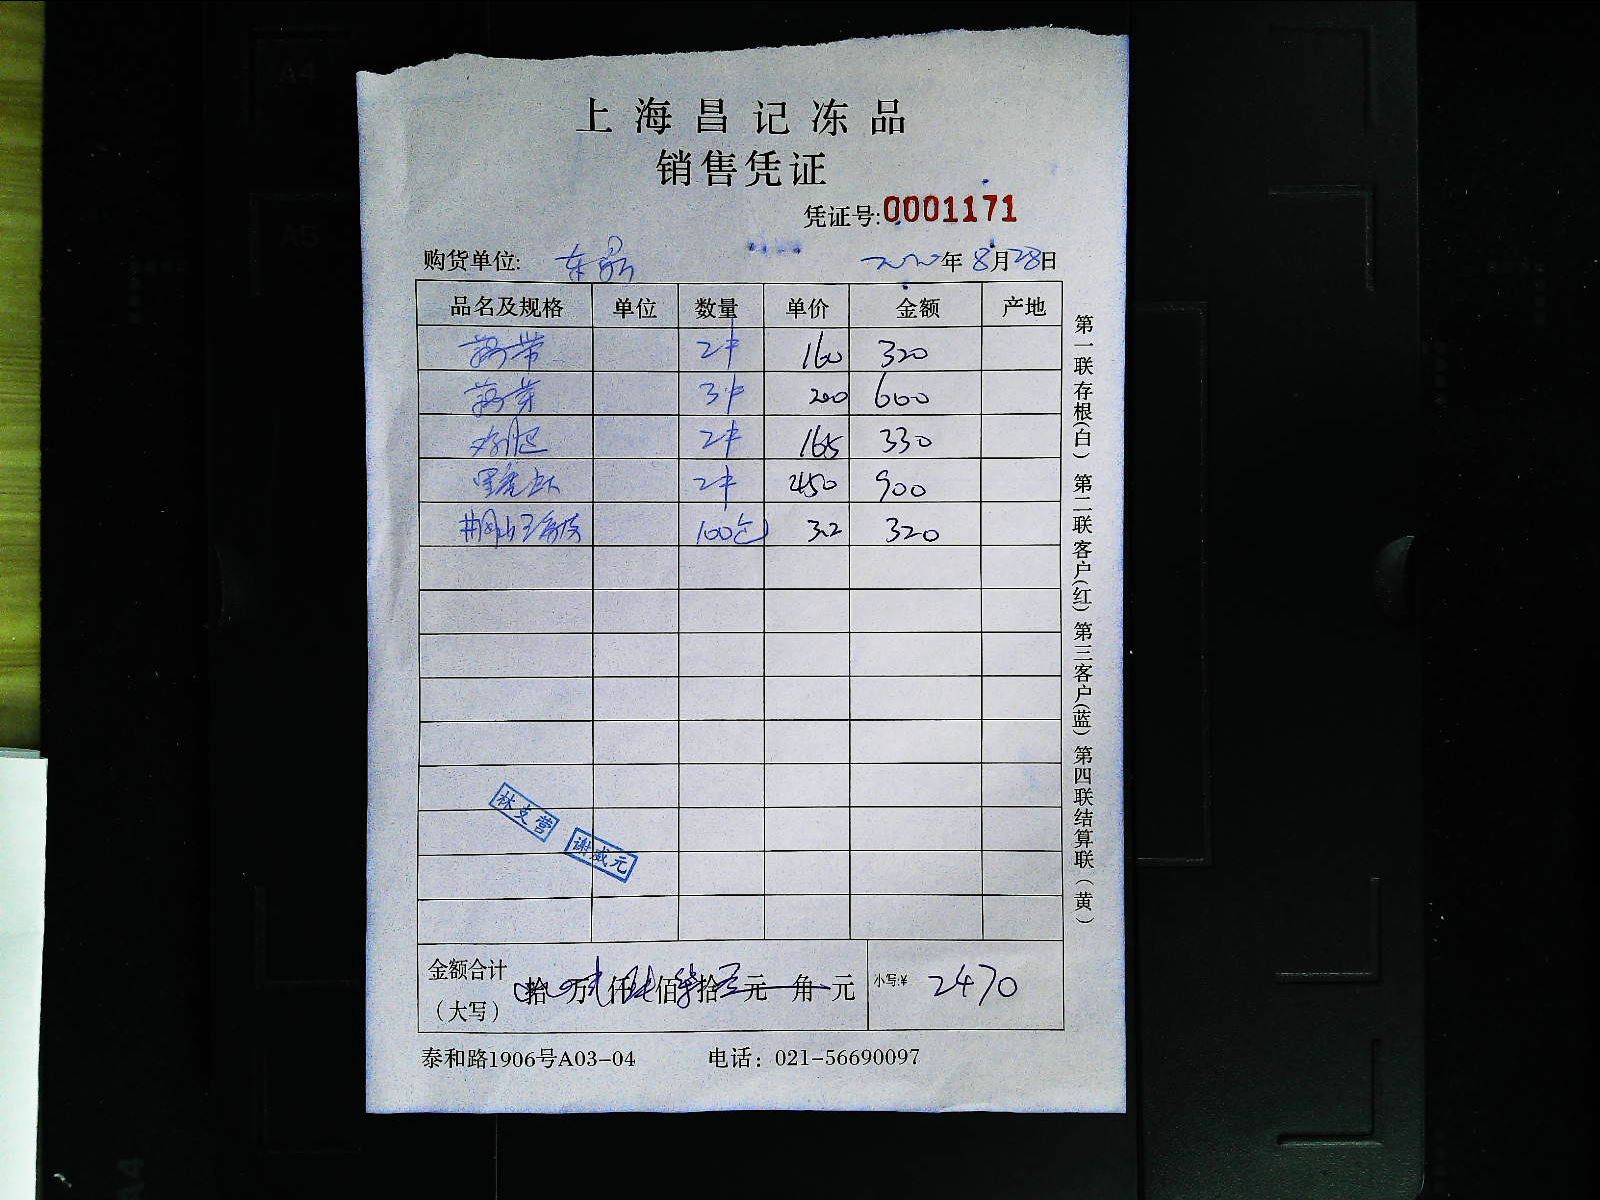 上海昌记冻品
销售凭证
凭证号:0001171
购货单位: 东 年 8月28日
品名及规格 单位 数量 单价 金额 产地
藕带 2件 160 320
藕芽 3件 200 600
2件 165 330
黑虎虾 2件 450 900
100包 3.2 320
林支营
谢威元
金额合计(大写) 拾 万 贰仟 肆佰 柒拾 元 角 元 小写:¥ 2470
泰和路1906号A03-04 电话：021-56690097
第一联存根(白) 第二联客户(红) 第三客户(蓝) 第四联结算联(黄)
A4
A5